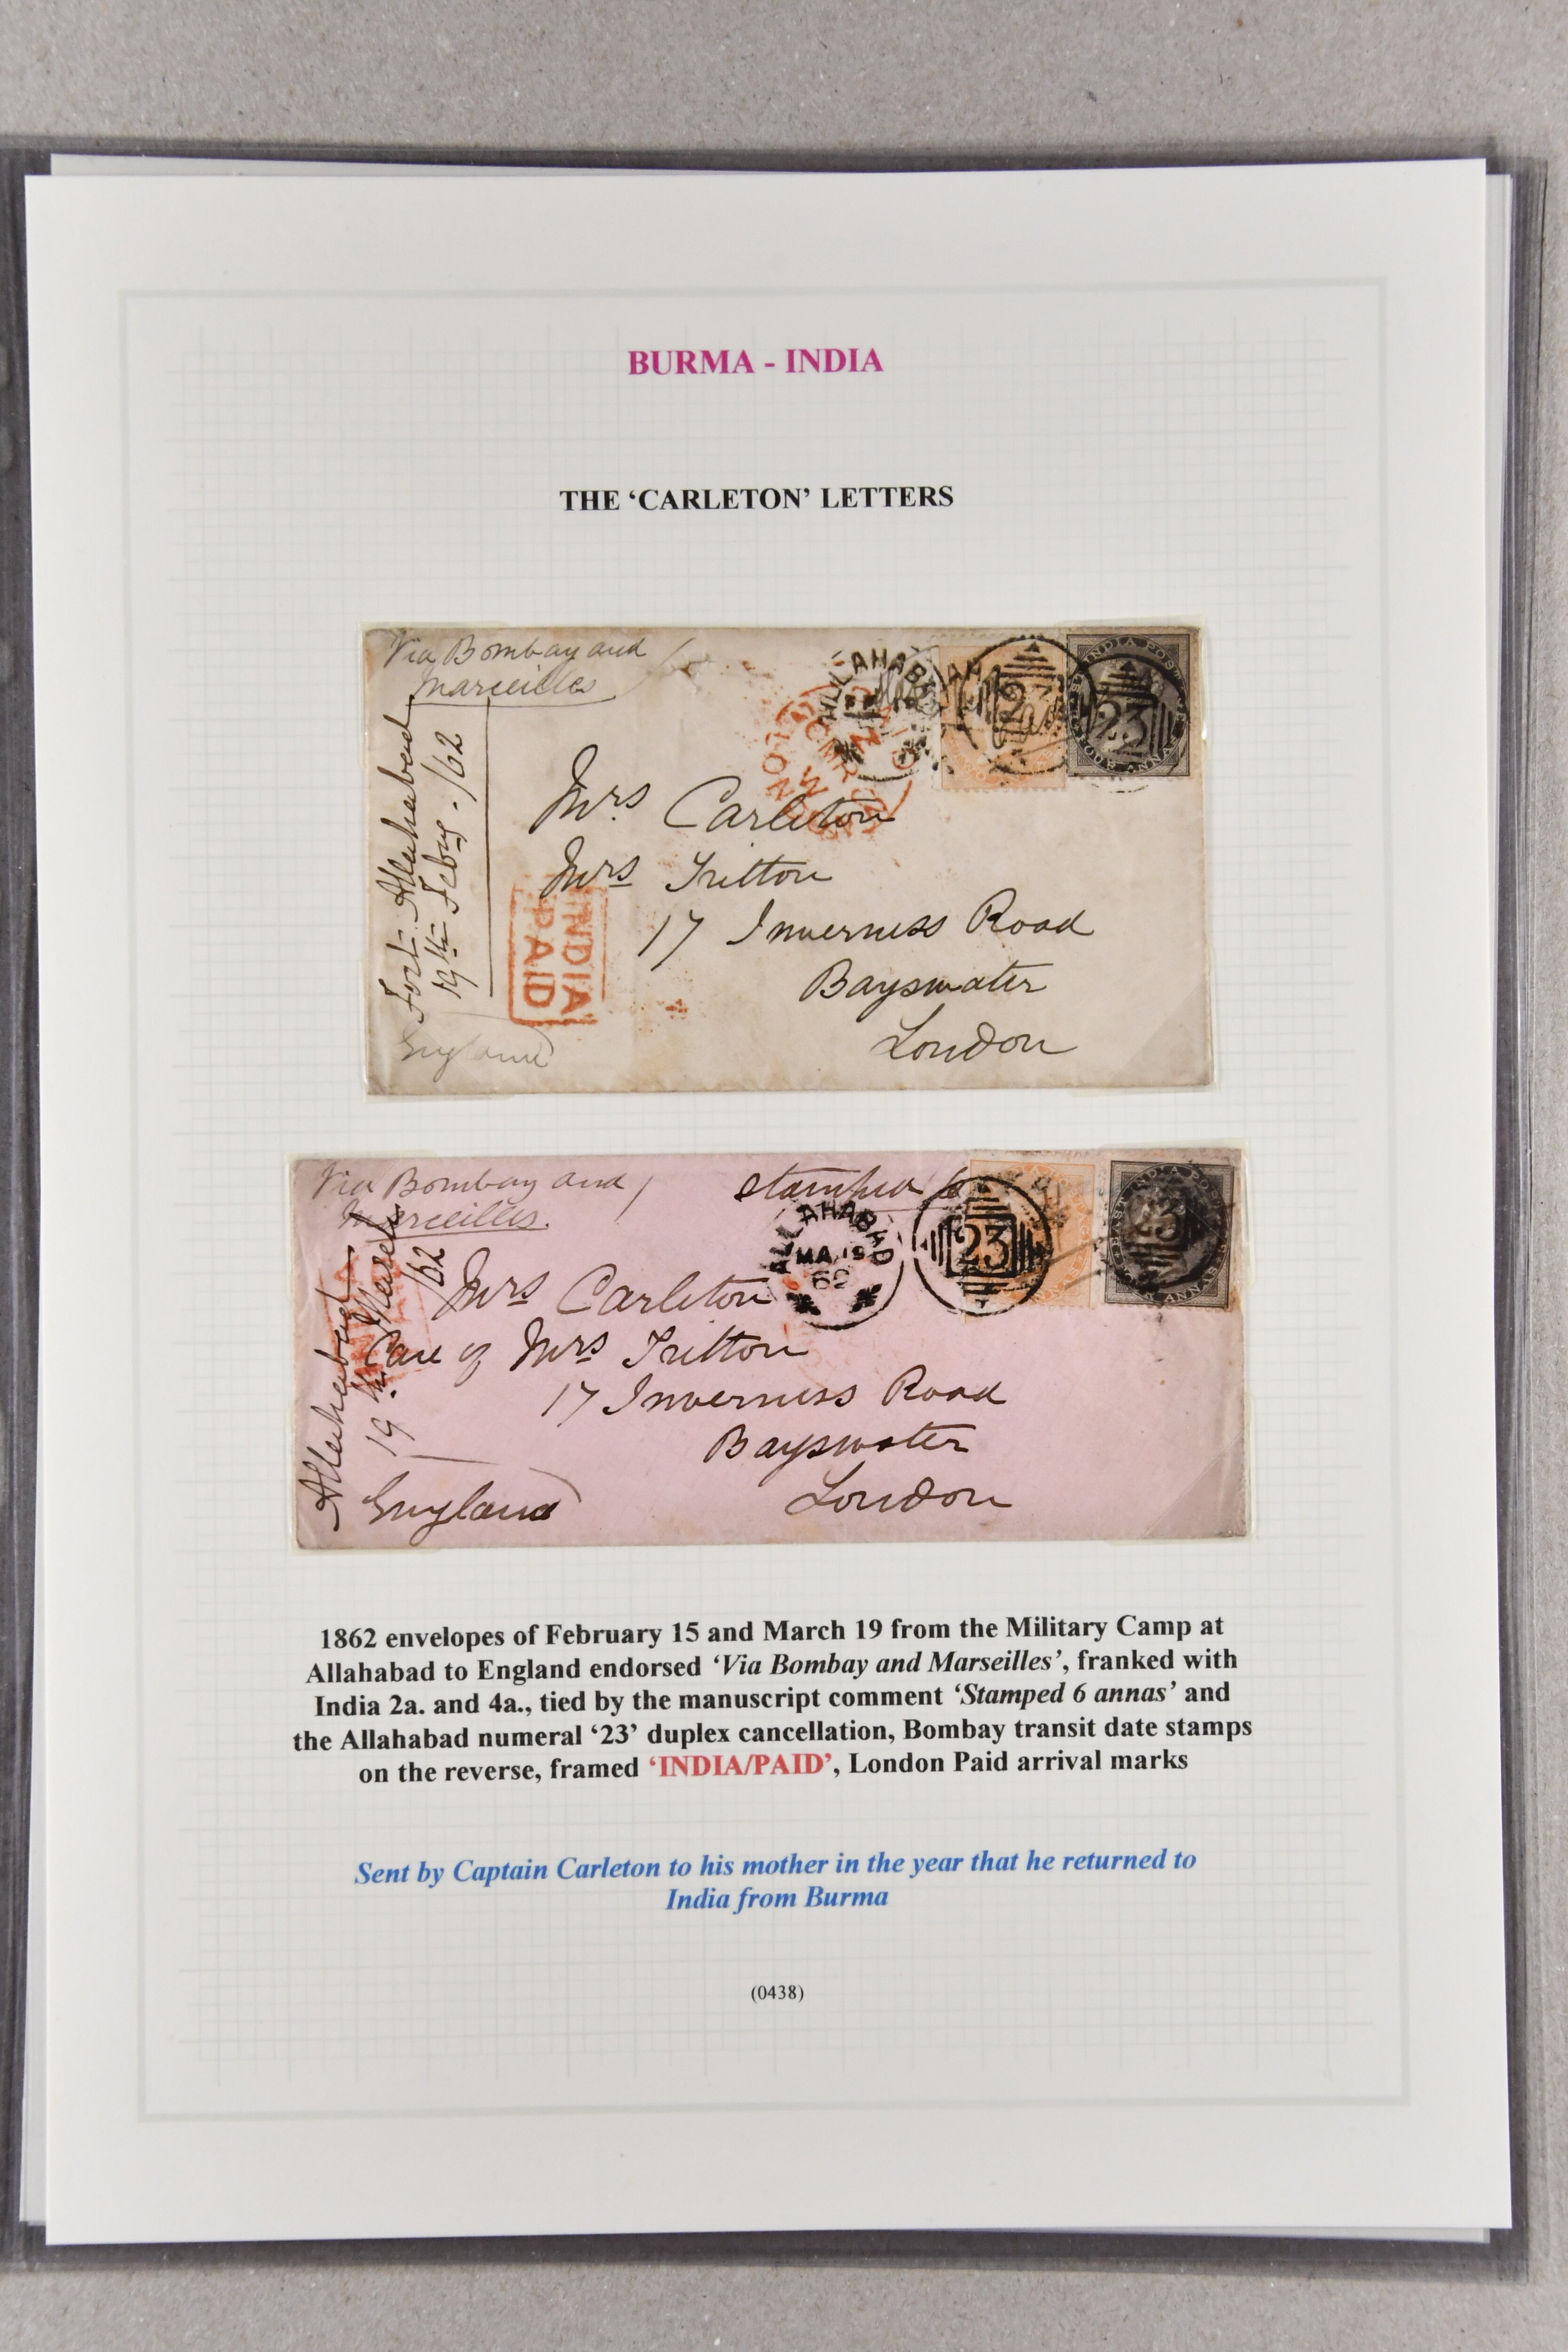 BURMA - INDIA
THE ‘CARLETON’ LETTERS
Via Bombay and
Marseilles
Fort Allahabad
19th Feby. /62
England
INDIA
PAID
ALLAHABAD
23
23
INDIA POSTAGE
FOUR ANNAS
Mrs Carleton
Mrs Tritton
17 Inverness Road
Bayswater
London
Via Bombay and
Marseilles.
stamped 6
Allahabad
19th March
/62
ALLAHABAD
MA 19
62
23
23
Mrs Carleton
Care of Mrs Tritton
17 Inverness Road
Bayswater
London
England
1862 envelopes of February 15 and March 19 from the Military Camp at
Allahabad to England endorsed ‘Via Bombay and Marseilles’, franked with
India 2a. and 4a., tied by the manuscript comment ‘Stamped 6 annas’ and
the Allahabad numeral ‘23’ duplex cancellation, Bombay transit date stamps
on the reverse, framed ‘INDIA/PAID’, London Paid arrival marks
Sent by Captain Carleton to his mother in the year that he returned to
India from Burma
(0438)